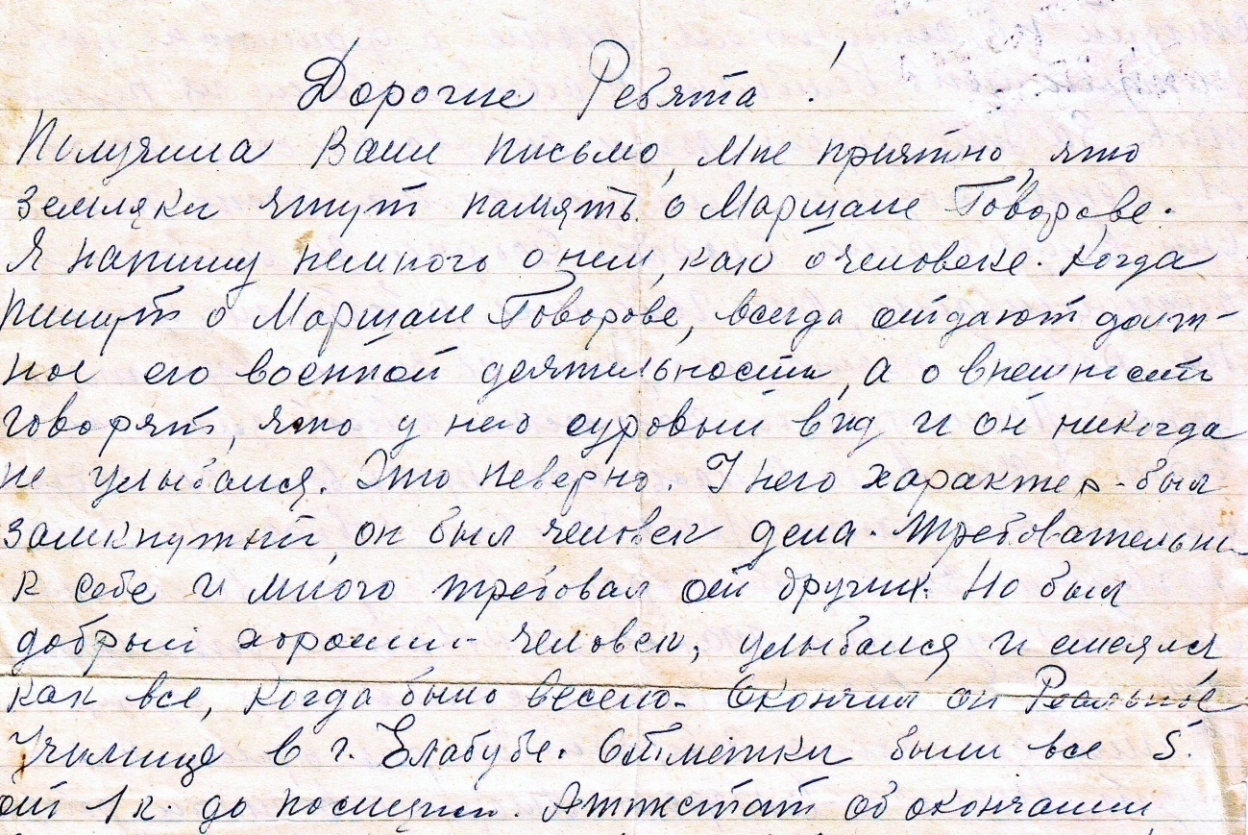 Дорогие Ребята!
Получила Ваше письмо, мне приятно, что
земляки чтут память о Маршале Говорове.
Я напишу немного о нем, как о человеке. Когда
пишут о Маршале Говорове, всегда отдают долж-
ное его военной деятельности, а о внешности
говорят, что у него суровый вид и он никогда
не улыбался. Это неверно. У него характер был
замкнутый, он был человек дела. Требователен
к себе и много требовал от других. Но был
добрый хороший человек, улыбался и смеялся
как все, когда было весело. Окончил он Реальное
Училище в г. Елабубе. Отметки были все 5.
от 1 к. до последн. Аттестат об окончании